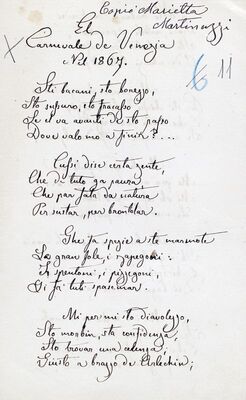 Copiò Marietta
Martinuzzi
El
Carnevale de Venezia
Nel 1867.
6 11
Sti bacani, sto bonezzo,
Sto sussuro, sto fracasso
Se el va avanti de sto passo
Dove valo mo a finir? ...
Cussì dise certa zente,
Che de tuto ga paura
Che par fata da natura
Per sustar, per brontolar.
Ghe fa spezie a ste marmote
La gran fole, i
I spentoni, i pizzegoni,
Si fà tuti spasemar.
Mi per mi sto diavolezzo,
Sto morbin, sta confidenza,
Sto trovar una celenza
Giusto a brazzo de Arlechin;